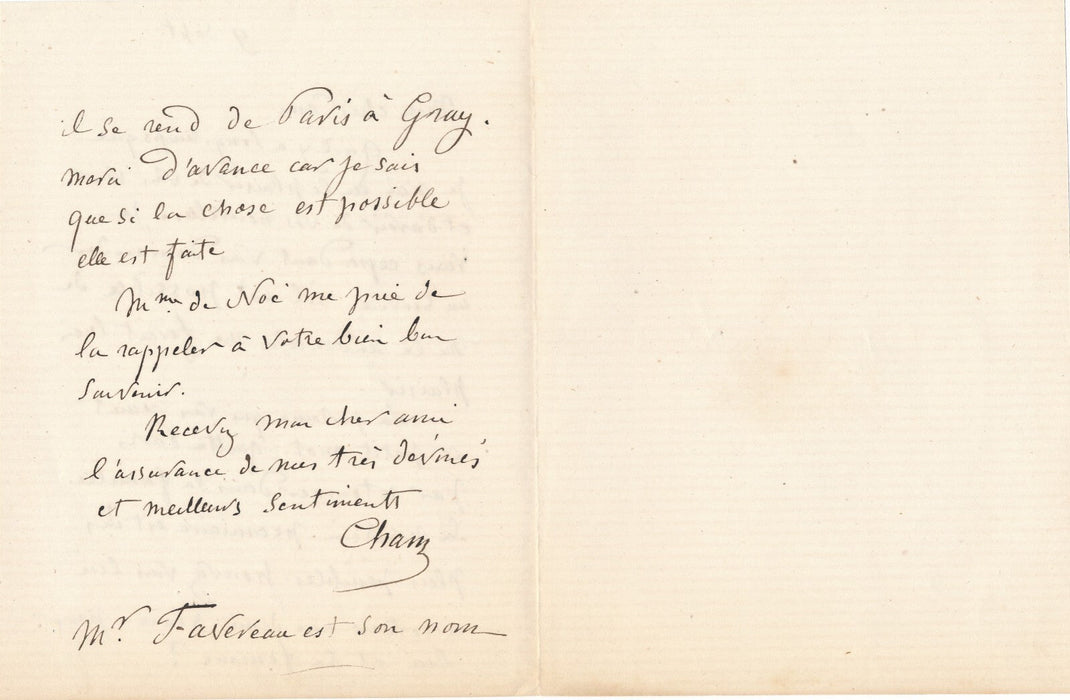 il se rend de Paris à Gray.
merci d'avance car je sais
que si la chose est possible
elle est faite
Mme de Noé me prie de
la rappeler à votre bien bon
souvenir.
Recevez mon cher ami
l'assurance de nos très dévoués
et meilleurs sentiments
Cham
Mr Favereau est son nom